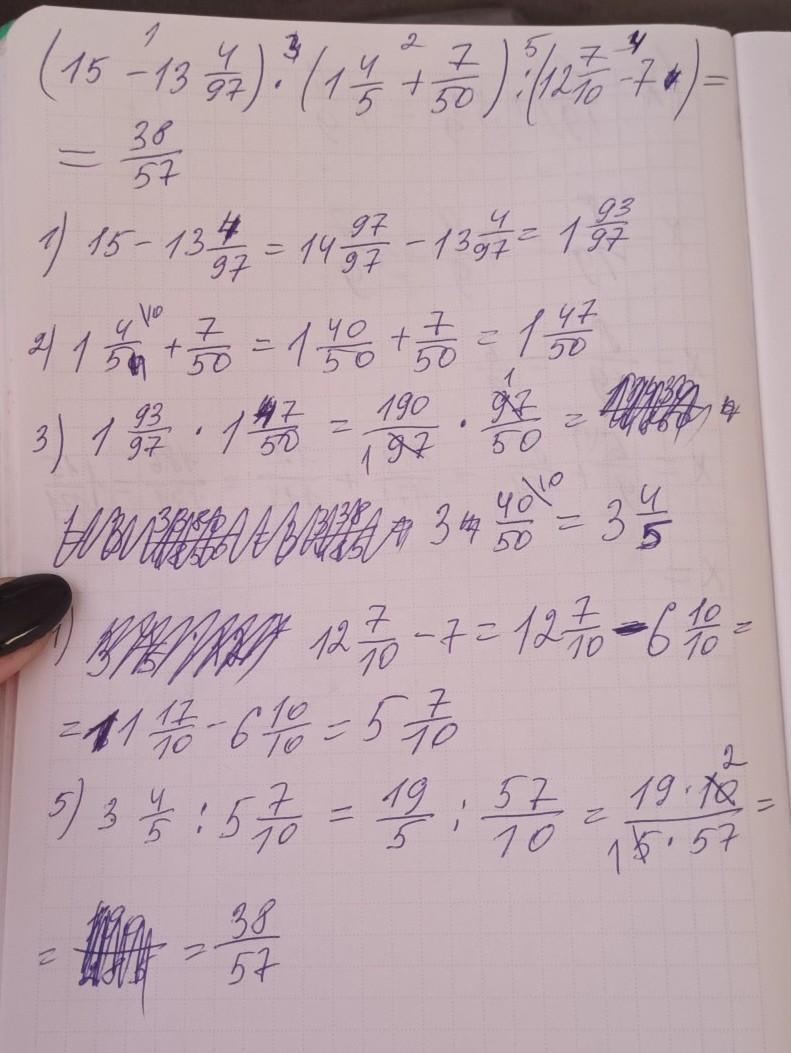 (15 - 13 4/97) · (1 4/5 + 7/50) : (12 7/10 - 7) =
= 38/57
1) 15 - 13 4/97 = 14 97/97 - 13 4/97 = 1 93/97
2) 1 4/5 \10 + 7/50 = 1 40/50 + 7/50 = 1 47/50
3) 1 93/97 · 1 47/50 = 190/97 · 97/50 =
3 40/50 \10 = 3 4/5
) 12 7/10 - 7 = 12 7/10 - 6 10/10 =
= 11 17/10 - 6 10/10 = 5 7/10
5) 3 4/5 : 5 7/10 = 19/5 : 57/10 = 19 · 10/5 · 57 =
= = 38/57